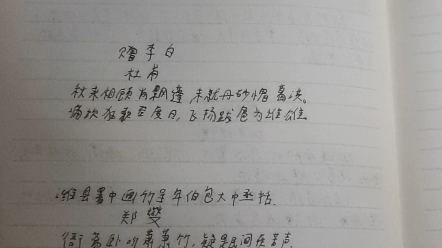 赠李白
杜甫
秋来相顾尚飘蓬,未就丹砂愧葛洪。
痛饮狂歌空度日,飞扬跋扈为谁雄
潍县署中画竹呈年伯包大中丞括
郑燮
衙斋卧听萧萧竹,疑是民间疾苦声。